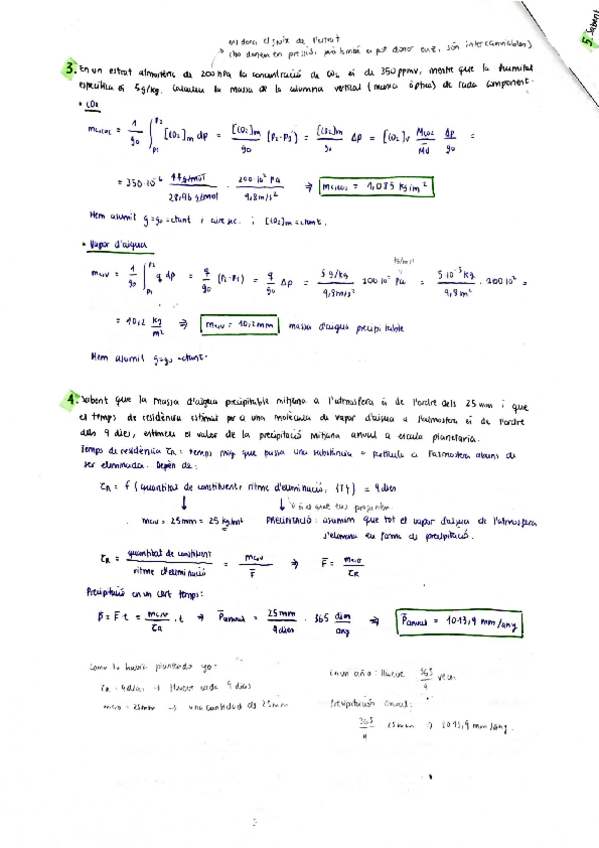 ens dona el gruix de l'estrat
5. Sabent
3. En un estrat atmosfèric de 200 hPa la concentració de CO2 és de 350 ppmv, mentre que la humitat
específica és 5 g/kg. Calculeu la massa de la columna vertical (massa òptica) de cada component.
• CO2
mcvco2 = 1/g0 ∫ p1 p2 [CO2]m dp = [CO2]m/g0 (p2-p1) = [CO2]m/g0 Δp = [CO2]v Mco2/Md Δp/g0 =
= 350·10^-6 44 g/mol / 28,96 g/mol · 200·10^2 Pa / 9,8 m/s^2 ⇒ mcvco2 = 1,085 kg/m^2
Hem assumit g=g0=ctant i aire sec. i [CO2]m=ctant.
• Vapor d'aigua
mcvv = 1/g0 ∫ p1 p2 q dp = q/g0 (p2-p1) = q/g0 Δp = 5 g/kg / 9,8 m/s^2 200·10^2 Pa = 5·10^-3 kg / 9,8 m^2 · 200·10^2 =
= 10,2 kg/m^2 ⇒ mcvv = 10,2 mm massa d'aigua precipitable
Hem assumit g=g0=ctant.
4. Sabent que la massa d'aigua precipitable mitjana a l'atmosfera és de l'ordre dels 25 mm i que
el temps de residència estimat per a una molècula de vapor d'aigua a l'atmosfera és de l'ordre
dels 9 dies, estimeu el valor de la precipitació mitjana anual a escala planetària.
Temps de residència τR: temps mig que passa una substància o partícula a l'atmosfera abans de
ser eliminada. Depèn de:
τR = f (quantitat de constituent, ritme d'eliminació, {T}) = 9 dies
mcvv = 25 mm = 25 kg/m^2 PRECIPITACIÓ: assumim que tot el vapor d'aigua de l'atmosfera
s'elimina en forma de precipitació.
τR = quantitat de constituent / ritme d'eliminació = mcvv / F̄ ⇒ F̄ = mcvv / τR
Precipitació en un cert temps:
P̄ = F̄ t = mcvv/τR · t ⇒ P̄anual = 25 mm / 9 dies · 365 dies/any ⇒ P̄anual = 1013,9 mm/any
Como lo habría planteado yo:
En un año: llueve 365/9 veces
τR = 9 días → llueve cada 9 días
mcvv = 25 mm → una cantidad de 25 mm
Precipitación anual:
365/9 25 mm ⇒ 1013,9 mm/any.